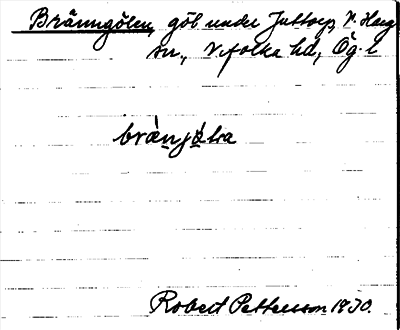 Bränngölen, göl under Juttorp, V. Harg
sn., Vifolka hd, Ög. l
brànjö̀lra
Robert Pettersson 1930.